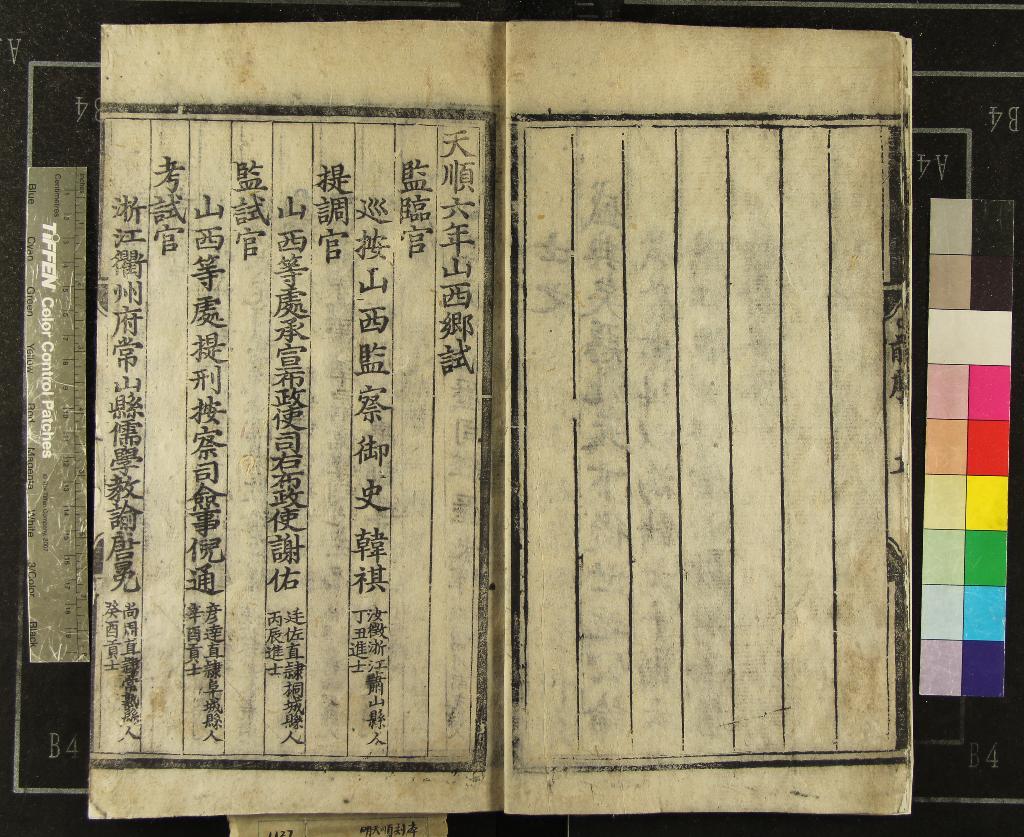 天順六年山西鄉試
監臨官
巡按山西監察御史韓祺
汝徵浙江蕭山縣人
丁丑進士
提調官
山西等處承宣布政使司右布政使謝佑
廷佐直隸桐城縣人
丙辰進士
監試官
山西等處提刑按察司僉事倪通
彥達直隸阜城縣人
辛酉貢士
考試官
浙江衢州府常山縣儒學教諭唐冕
尚周直隸常熟縣人
癸酉貢士
前序
B4
B4
A4
B4
B4
A
Blue
Cyan
Green
Yellow
Red
Magenta
White
3/Color
Black
Centimetres
TIFFEN Color Control Patches